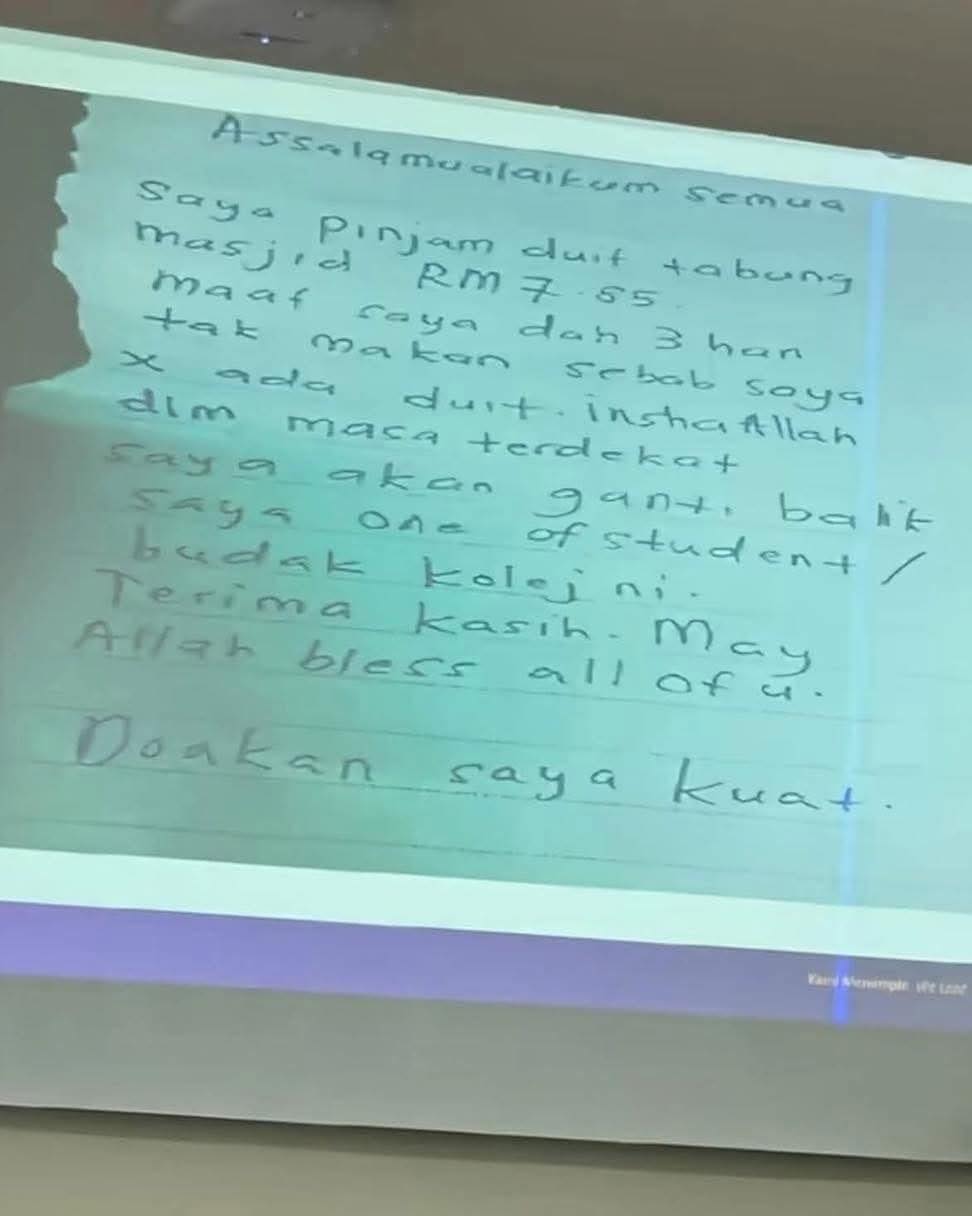 Assalamualaikum semua
Saya pinjam duit tabung
masjid RM 7.55.
maaf saya dah 3 hari
tak makan sebab saya
x ada duit. insha Allah
dlm masa terdekat
saya akan ganti balik
saya one of student /
budak kolej ni.
Terima kasih. May
Allah bless all of u.
Doakan saya kuat.